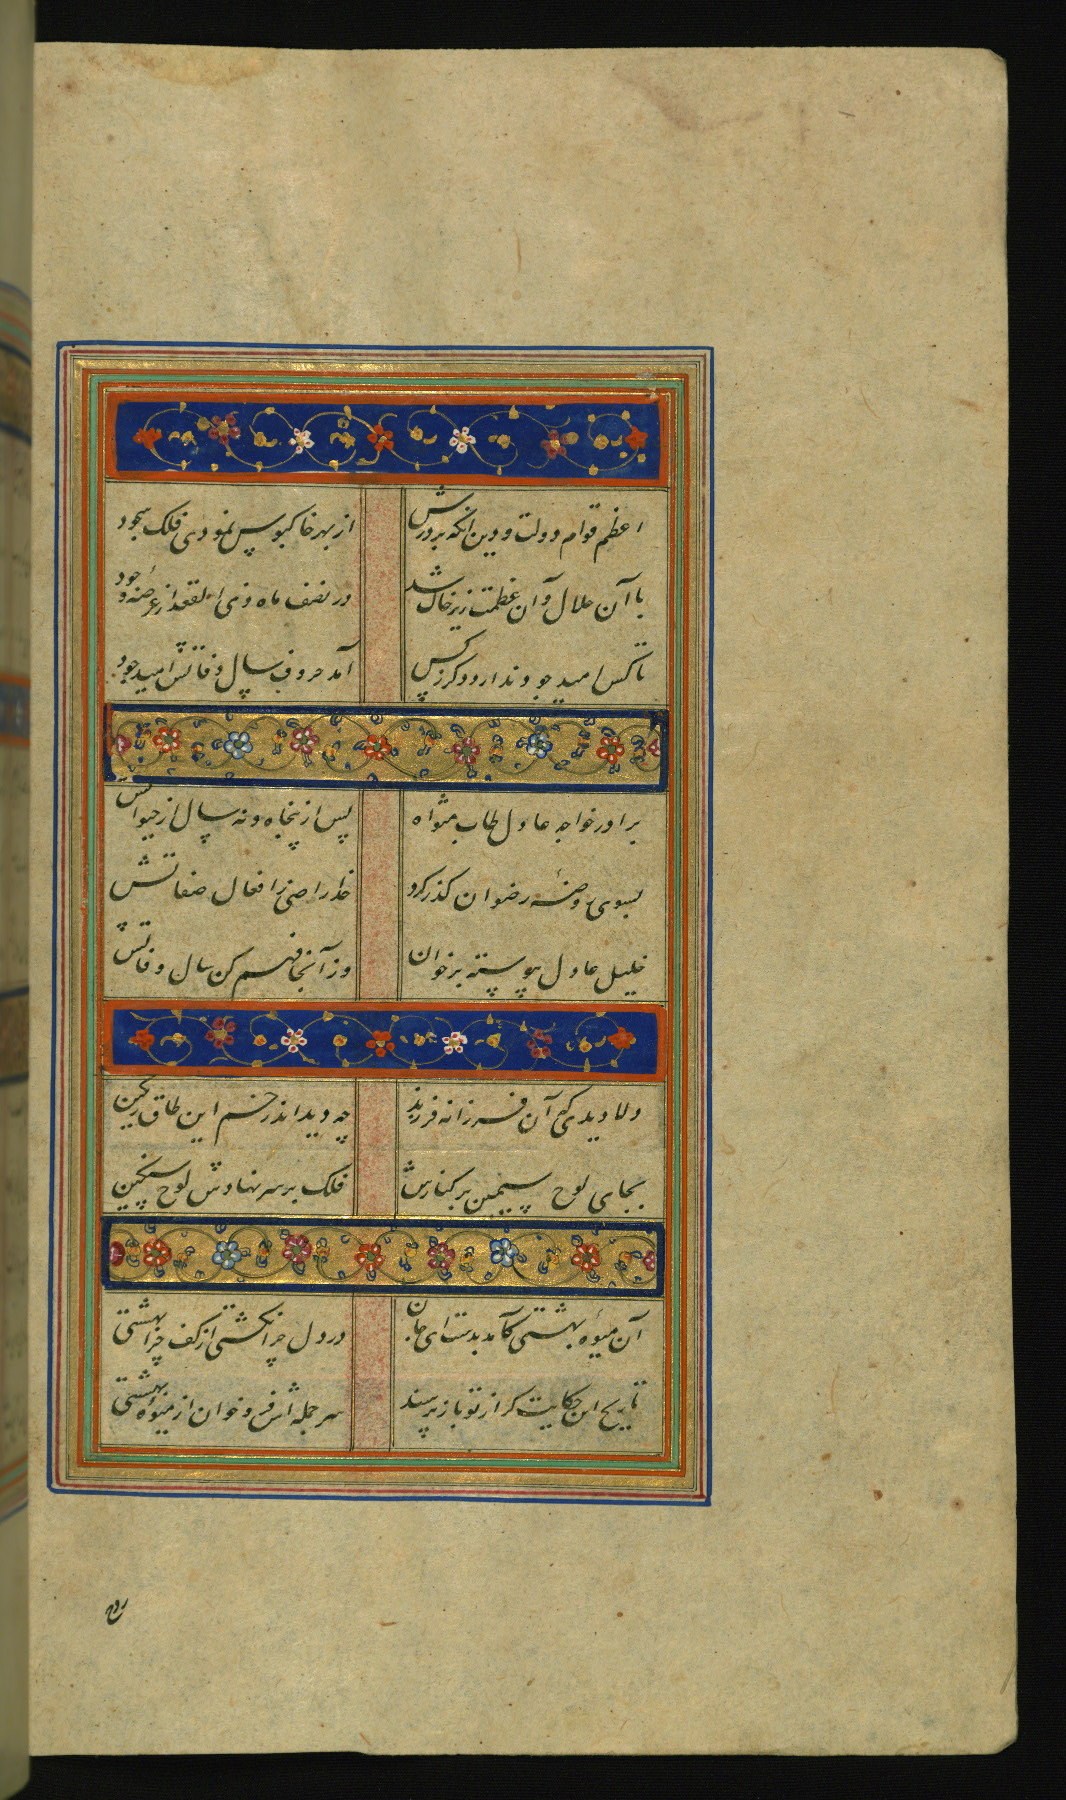 اعظم قوام دولت و دین آنکه بر درش از بهر خاکبوس نمودی فلک سجود
با آن جلال و آن عظمت زیر خاک شد در نصف ماه ذی القعد از عرصهٔ وجود
تا کس امید جود ندارد دگر ز کس آمد حروف سال وفاتش امید جود
برادر خواجه عادل طاب مثواه پس از پنجاه و نه سال از حیاتش
بسوی روضهٔ رضوان گذر کرد خدا راضی ز افعال صفاتش
خلیل عادل پیوسته برخوان وز آنجا فهم کن سال وفاتش
دلا دیدی که آن فرزانه فرزند چه دید اندر خم این طاق رنگین
بجای لوح سیمین بر کنارش فلک بر سر نهادش لوح سنگین
آن میوهٔ بهشتی کامد بدستت ای جان در دل چرا نکشتی از کف چرا بهشتی
تاریخ این حکایت گر از تو باز پرسند سر جمله اش فرو خوان از میوهٔ بهشتی